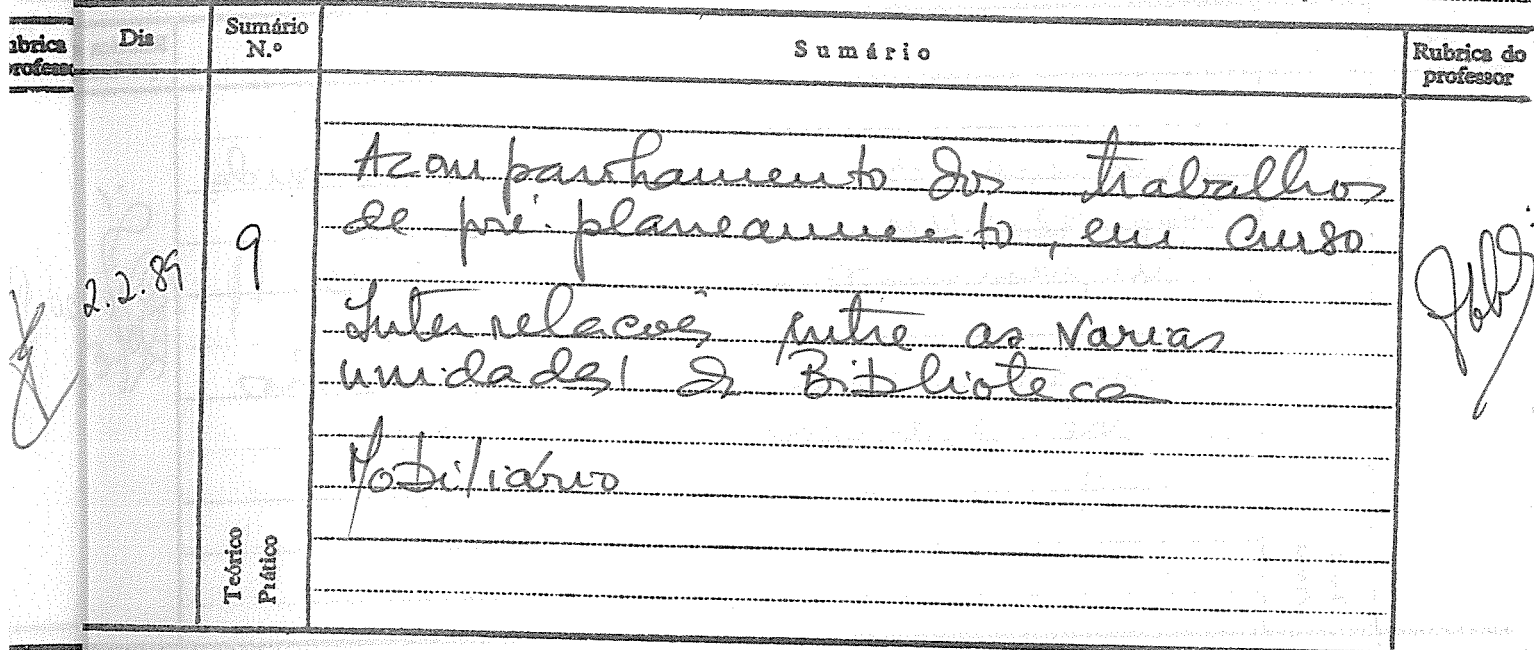 ubrica
professo
Dia
Sumário
N.º
Sumário
Rubrica do
professor
2.2.89
9
Acompanhamento dos trabalhos
de pré-planeamento, em curso
Inter relações entre as varias
unidades da Biblioteca
Mobiliário
Teórico
Prático